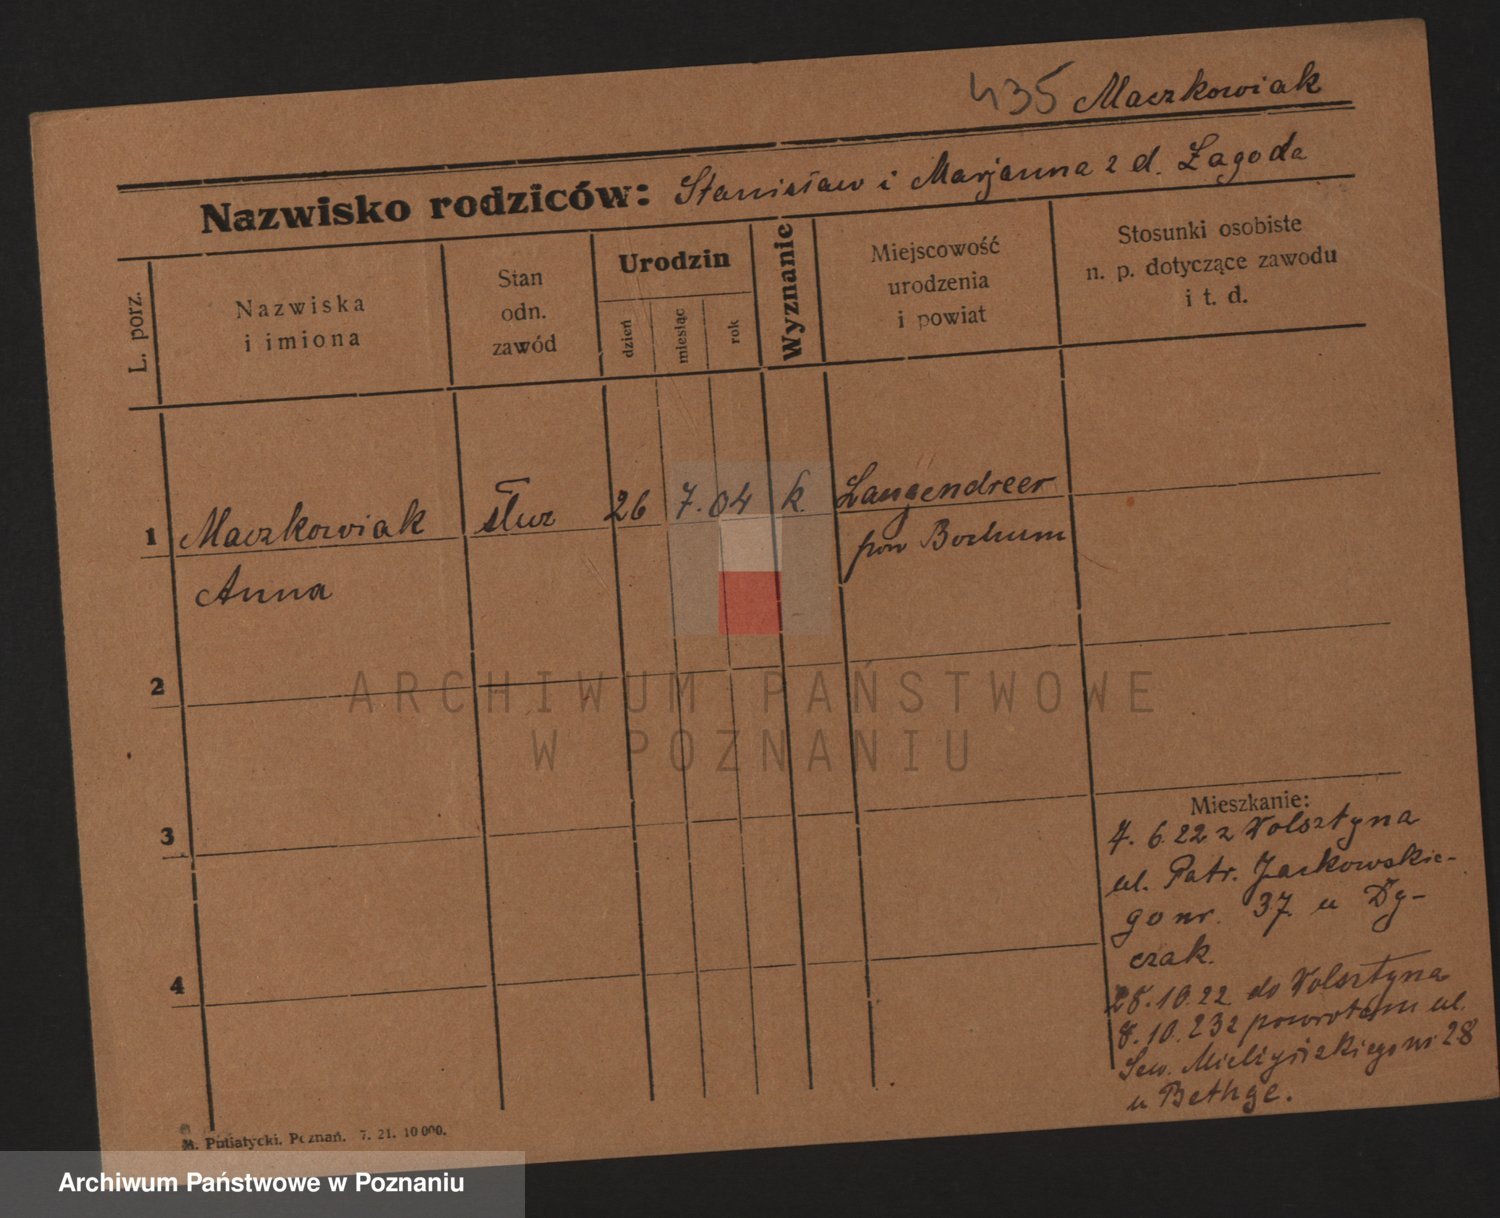 435 Maczkowiak
Nazwisko rodziców: Stanisław i Marjanna z d. Łagoda
L. porz.
Nazwiska
i imiona
Stan
odn.
zawód
Urodzin
dzień
miesiąc
rok
Wyznanie
Miejscowość
urodzenia
i powiat
Stosunki osobiste
n. p. dotyczące zawodu
i t. d.
1 Maczkowiak służ 26 7. 04 k. Langendreer
Anna pow Bochum
2
3
4
Mieszkanie:
7. 6 22 z Wolsztyna
ul. Patr. Jackowskie-
go nr. 37 u Dy-
czak.
28.10.22 do Wolsztyna
8.10.23 z powrotem ul.
Sew. Mielżyńskiego nr 28
u Bethge.
M. Putiatycki. Poznań. 7. 21. 10 000.
ARCHIWUM PAŃSTWOWE
W POZNANIU
Archiwum Państwowe w Poznaniu